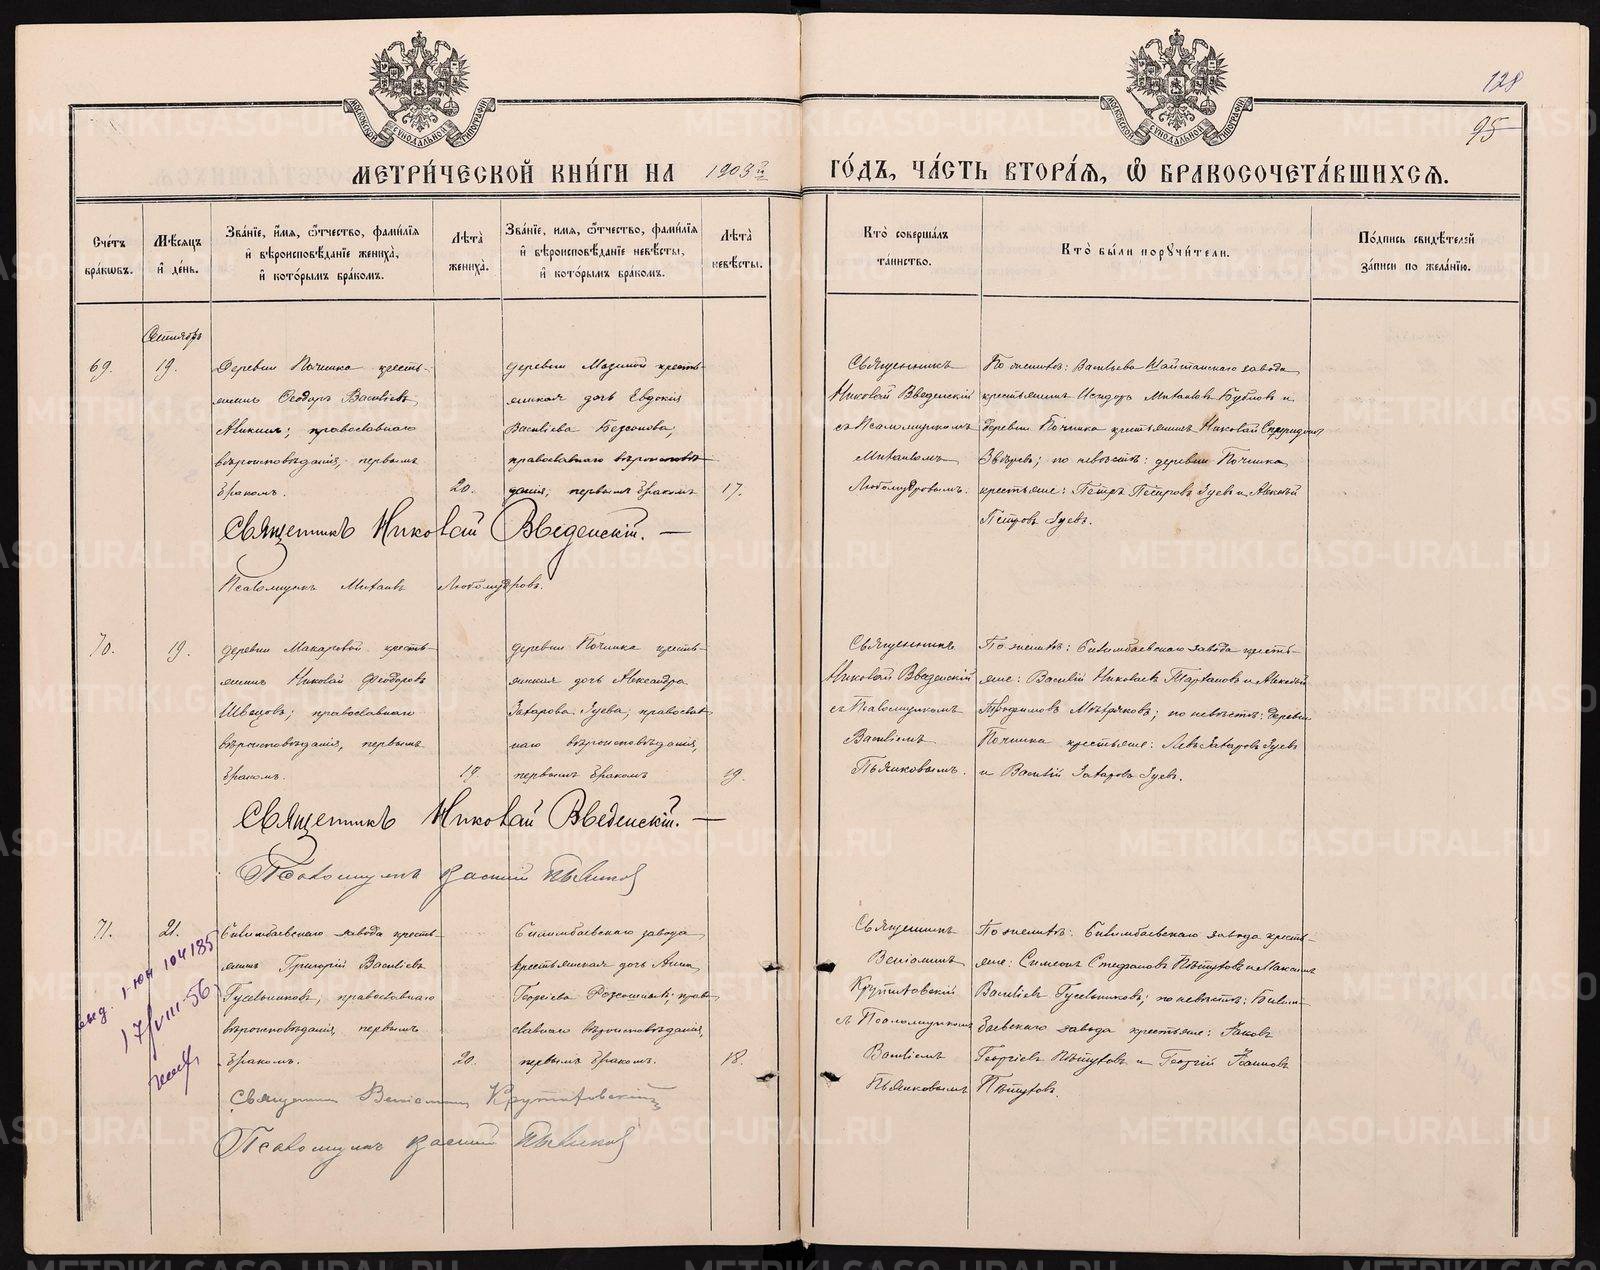 128
95
МЕТРИ́ЧЕСКОЙ КНИ́ГИ НА 1909й ГО́ДЪ, ЧА́СТЬ ВТОРА́Ѧ, Ѽ БРАКОСОЧЕТА́ВШИХСѦ.
Сче́тъ бра́кѡвъ.
Мѣ́сѧцъ и҆ де́нь.
Зва́нїе, и҆́мѧ, ѻ҆́тчество, фами́лїѧ и҆ вѣроисповѣ́данїе жениха̀, и҆ кото́рымъ бра́комъ.
Лѣта̀ жениха̀.
Зва́нїе, имѧ, ѻ҆́тчество, фами́лїѧ и҆ вѣроисповѣ́данїе невѣ́сты, и҆ кото́рымъ бра́комъ.
Лѣта̀ невѣ́сты.
Кто̀ соверша́лъ та́инство.
Кто̀ бы́ли поручи́тели.
По́дпись свидѣ́телей за́писи по жела́нїю.
Сентябрь
69.
19.
Деревни Починка кресть-
янинъ Ѳеодоръ Васильевъ
православнаго
вѣроисповѣданія, первымъ
бракомъ.
20.
деревни Мазиной кресть-
янская дочь Евдокія
Васильева Безсонова,
православнаго вѣроисповѣ-
данія, первымъ бракомъ
17.
Священникъ
Николай Введенскій
съ Псаломщикомъ
Михаиломъ
Любомудровымъ.
По женихѣ: Васильево Шайтанскаго завода
крестьянинъ Исидоръ Михаиловъ и
деревни Починка крестьянинъ Николай Спиридоновъ
Звѣревъ; по невѣстѣ: деревни Починка
крестьяне: Петръ Зуевъ и Алексѣй
Петровъ Зуевъ.
Священникъ Николай Введенскій. —
Псаломщикъ Михаилъ Любомудровъ.
70.
19.
деревни Макаровой кресть-
янинъ Николай Ѳеодоровъ
Швецовъ; православнаго
вѣроисповѣданія, первымъ
бракомъ.
19.
деревни Починка кресть-
янская дочь Александра
Захарова Зуева, православ-
наго вѣроисповѣданія,
первымъ бракомъ
19.
Священникъ
Николай Введенскій
съ Псаломщикомъ
Василіемъ
Пьянковымъ.
По женихѣ: Билимбаевскаго завода кресть-
яне: Василій Николаевъ и Алексѣй
Трофимовъ; по невѣстѣ: деревни
Починка крестьяне: Левъ Захаровъ Зуевъ
и Василій Захаровъ Зуевъ.
Священникъ Николай Введенскій. —
Псаломщикъ Василій Пьянковъ
71.
21.
Билимбаевскаго завода кресть-
янинъ Григорій Васильевъ
Гусельниковъ, православнаго
вѣроисповѣданія, первымъ
бракомъ.
20.
Билимбаевскаго завода
крестьянская дочь Анна
Георгіева право-
славнаго вѣроисповѣданія,
первымъ бракомъ.
18.
Священникъ
Веніаминъ
Крутиховскій
съ Псаломщикомъ
Василіемъ
Пьянковымъ
По женихѣ: Билимбаевскаго завода кресть-
яне: Симеонъ Стефановъ Пѣтуховъ и Максимъ
Васильевъ Гусельниковъ; по невѣстѣ: Билим-
баевскаго завода крестьяне: Іаковъ
Георгіевъ Пѣтуховъ и Георгій
Пѣтуховъ.
Священникъ Веніаминъ Крутиховскій
Псаломщикъ Василій Пьянковъ
1-ЮН 104185
17/VIII-56
METRIKI.GASO-URAL.RU